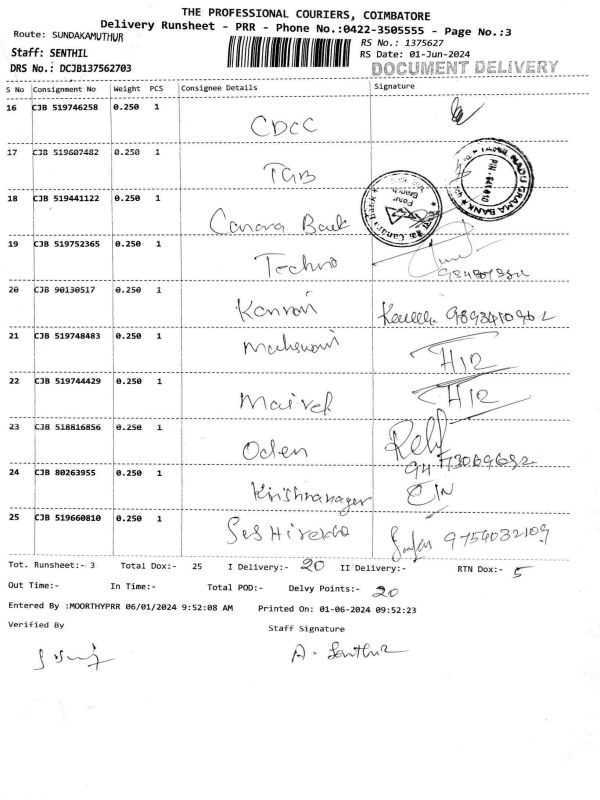 THE PROFESSIONAL COURIERS, COIMBATORE
Delivery Runsheet - PRR - Phone No.:0422-3505555 - Page No.:3
Route: SUNDAKAMUTHUR
RS No.: 1375627
Staff: SENTHIL
RS Date: 01-Jun-2024
DRS No.: DCJB137562703
DOCUMENT DELIVERY
S No Consignment No Weight PCS Consignee Details Signature
16 CJB 519746258 0.250 1 CDCC
17 CJB 519607482 0.250 1 TGB
18 CJB 519441122 0.250 1 Canara Bank
19 CJB 519752365 0.250 1 Techno
20 CJB 90130517 0.250 1 Kanrari 9893410962
21 CJB 519748483 0.250 1 H12
22 CJB 519744429 0.250 1 H12
23 CJB 518816856 0.250 1 Oden
24 CJB 80263955 0.250 1 Krishnanager
25 CJB 519660810 0.250 1 9754032109
Tot. Runsheet:- 3 Total Dox:- 25 I Delivery:- 20 II Delivery:- RTN Dox:- 5
Out Time:- In Time:- Total POD:- Delvy Points:- 20
Entered By :MOORTHYPRR 06/01/2024 9:52:08 AM Printed On: 01-06-2024 09:52:23
Verified By Staff Signature
A. Senthil